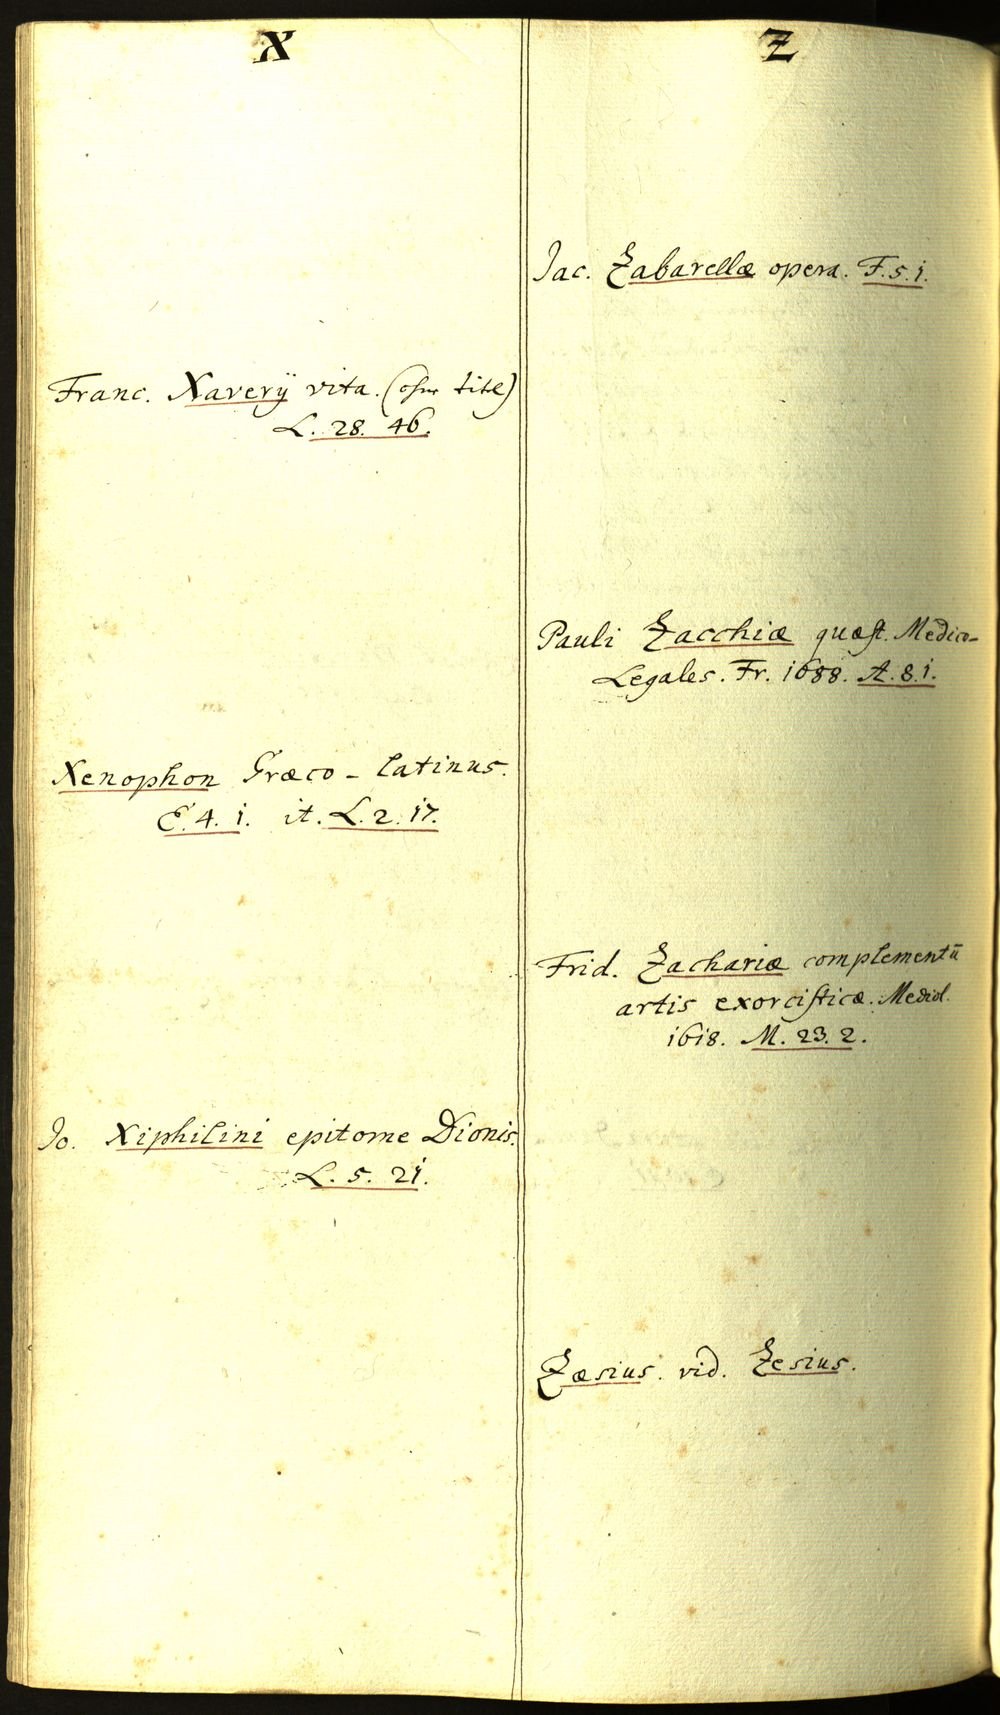 X
Franc. Xaverÿ vita. (ohne titl)
L. 28. 46.
Xenophon Græco-latinus.
E. 4. 1. it. L. 2. 17.
Jo. Xiphilini epitome Dionis.
L. 5. 21.
Z
Jac. Zabarellæ opera. F. 5. 1.
Pauli Zacchiæ quæst. Medico-
Legales. Fr. 1688. A. 8. 1.
Frid. Zachariæ complementū
artis exorcisticæ. Mediol.
1618. M. 23. 2.
Zæsius. vid. Zesius.